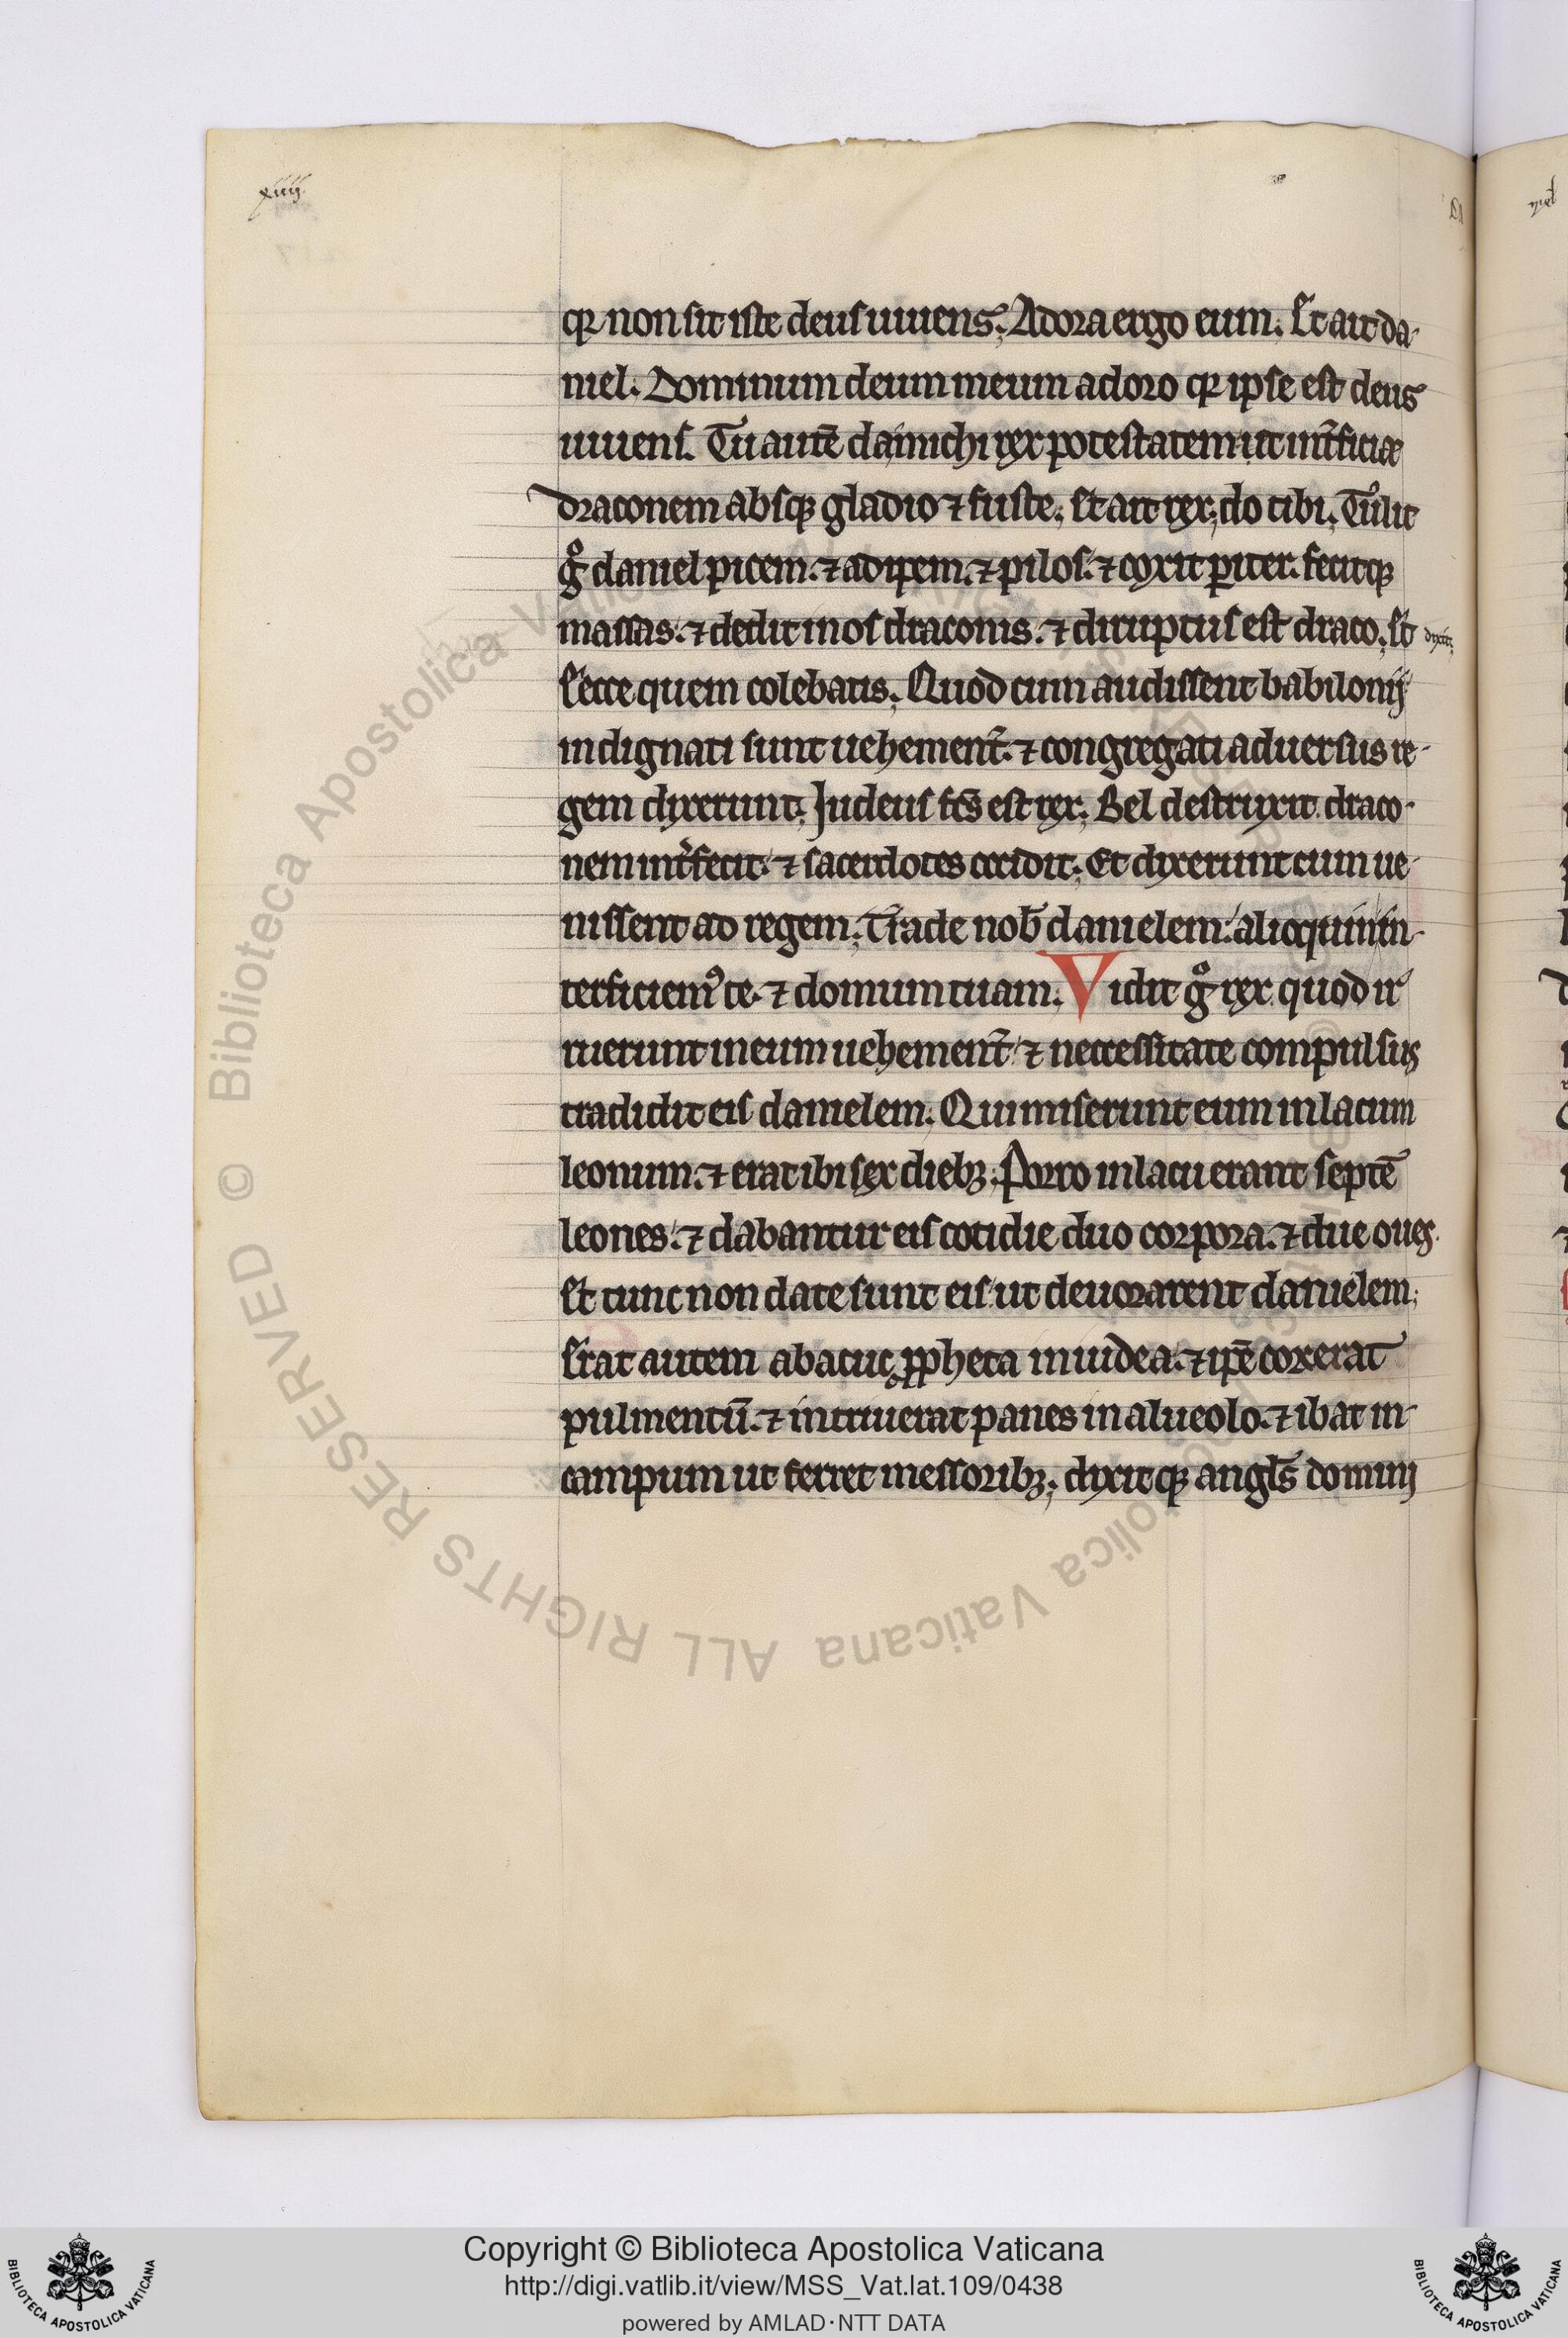 xiiij.
qꝛ non sit iste deus uiuens; Adora ergo eum; Et ait da-
niel. Dominum deum meum adoro qꝛ ipse est deus
uiuens. Tu autē da michi rex potestatem ut int̄ficiā
draconem absqꝫ gladio ⁊ fuste; Et ait rex; do tibi; Tulit
gͦ daniel picem. ⁊ adipem. ⁊ pilos. ⁊ coxit ꝑiter. fecitqꝫ
massas. ⁊ dedit in os draconis. ⁊ diruptus est draco; Et dixit;
Ecce quem colebatis; Quod cum audissent babilonij
indignati sunt uehement̄. ⁊ congregati aduersus re-
gem dixerunt; Judeus fc̄s est rex; Bel destruxit. draco-
nem int̄fecit. ⁊ sacerdotes occidit; Et dixerunt cum ue-
nissent ad regem; Trade nob̄ danielem. alioquin in-
terficiemꝰ te. ⁊ domum tuam; Vidit gͦ rex quod ir
ruerunt in eum uehement̄. ⁊ necessitate compulsus
tradidit eis danielem; Qui miserunt eum in lacum
leonum. ⁊ erat ibi sex diebꝫ; Porro in lacu erant septē
leones. ⁊ dabantur eis cotidie duo corpora. ⁊ due oues.
Et tunc non date sunt eis ut deuorarent danielem;
Erat autem abacuc ꝓpheta in iudea. ⁊ ip̄e coxerat
pulmentū. ⁊ intriuerat panes in alueolo. ⁊ ibat in
campum ut ferret messoribꝫ; dixitqꝫ angl̄s domini
© Biblioteca Apostolica Vaticana ALL RIGHTS RESERVED
Copyright © Biblioteca Apostolica Vaticana
http://digi.vatlib.it/view/MSS_Vat.lat.109/0438
powered by AMLAD·NTT DATA
BIBLIOTECA APOSTOLICA VATICANA
BIBLIOTECA APOSTOLICA VATICANA